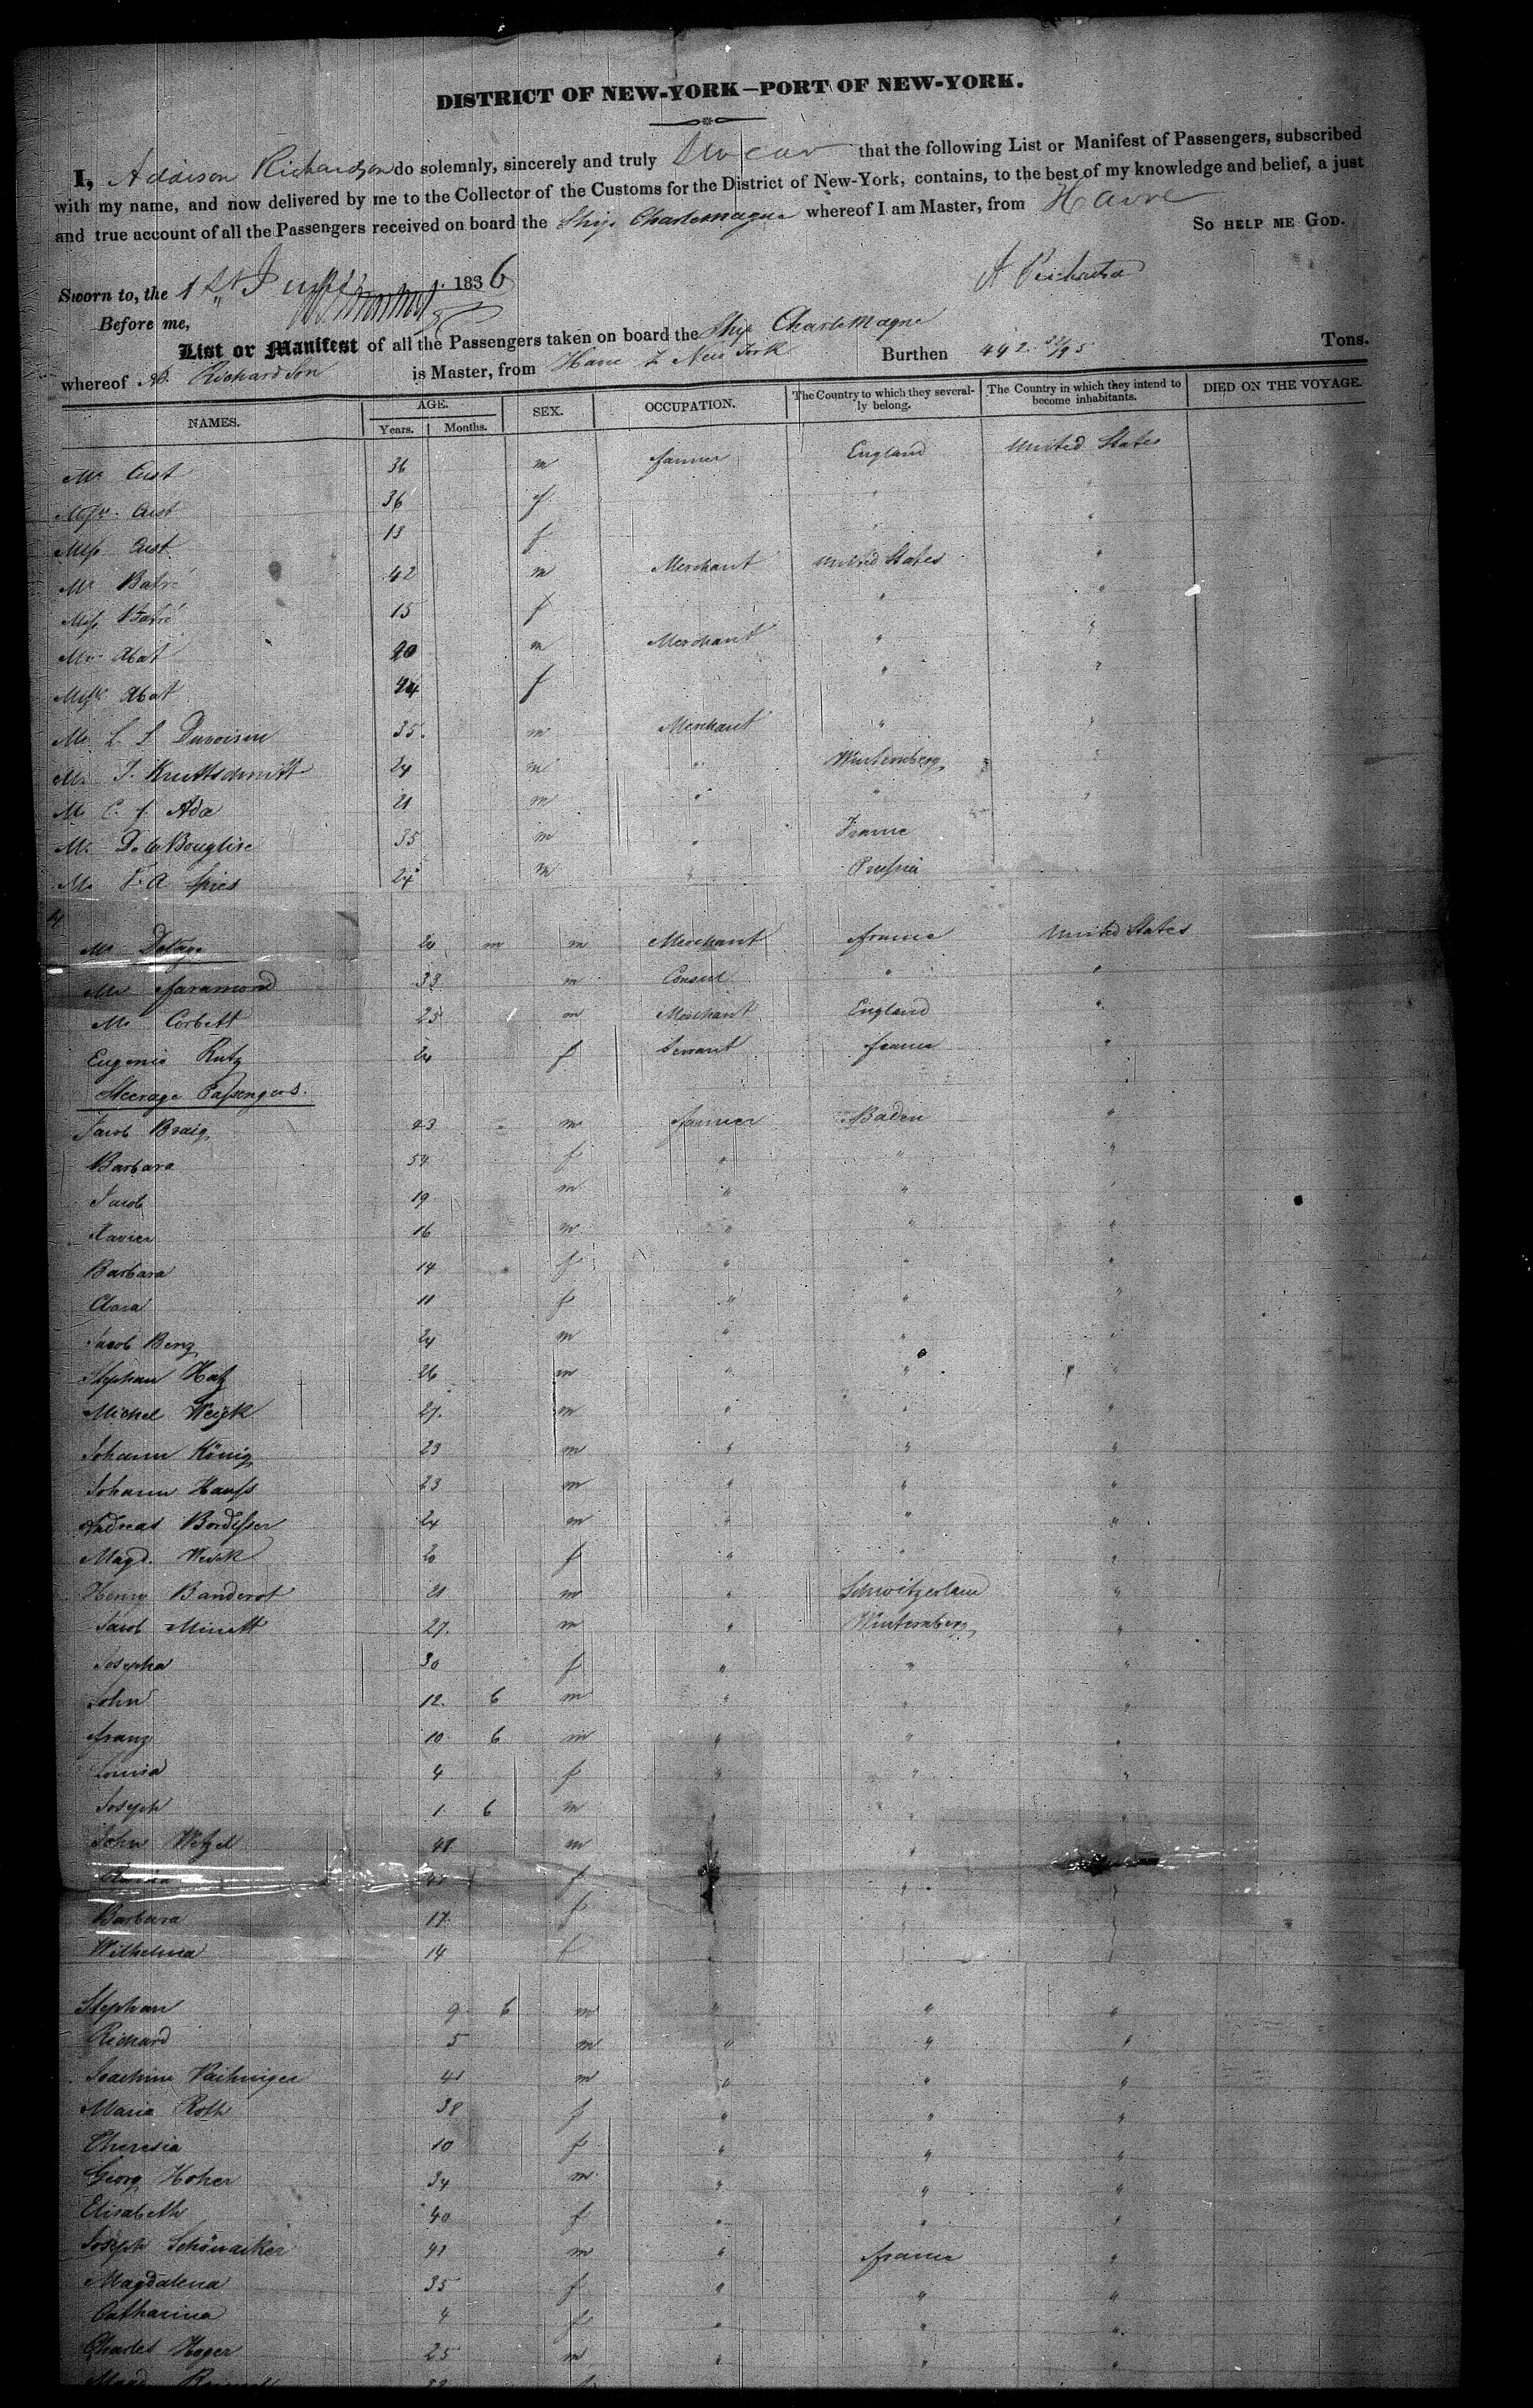 DISTRICT OF NEW-YORK—PORT OF NEW-YORK.
I, Addison Richardson do solemnly, sincerely and truly Swear that the following List or Manifest of Passengers, subscribed
with my name, and now delivered by me to the Collector of the Customs for the District of New-York, contains, to the best of my knowledge and belief, a just
and true account of all the Passengers received on board the Ship Charlemagne whereof I am Master, from Havre
SO HELP ME GOD.
Sworn to, the 1st June 1836 A Richardson
Before me,
List or Manifest of all the Passengers taken on board the Ship CharleMagne
whereof A. Richardson is Master, from Havre to New York Burthen 442 Tons.
NAMES. AGE. SEX. OCCUPATION. The Country to which they severally belong. The Country in which they intend to become inhabitants. DIED ON THE VOYAGE.
Years. Months.
Mr Cust 36 m farmer England United States
Mrs. Cust 36 f " "
Miss Cust 13 f " "
Mr Batre 42 m Merchant United States "
Miss Batré 15 f " "
Mr Abat m Merchant " "
Abat f " "
Mr L. S. Duvoisin 35. m Merchant " "
Mr J. Kruttschnitt 24 m " Wurtemberg "
Mr C. f. Ada 21 m " " "
Mr De la Bouglise 35 m " France
Mr F. A Spies 24 m " Prussia
Mr Delage m m Merchant france United States
Mr faramond 33 m Consul " "
Mr Corbett 25 m Merchant England "
Eugenie Rutz 24 f Servant france "
Steerage Passengers.
Jacob Braig m farmer Baden "
Barbara 54 f " " "
Jacob 19 m " " "
Xavier 16 m " " "
Barbara 14 f " " "
Clara 11 f " " "
Jacob Benz 24 m " " "
Stephan Hatz 26 m " " "
Michel Weick 27. m " " "
Johann König 23 m " " "
Johann Hauss 23 m " " "
Andreas 24 m " " "
Magd. Weick 20 f " " "
Henry Banderot 21 m " Schwitzerland "
Jacob Minett 27. m " Wurtemberg "
Josepha 30 f " " "
John 12. 6 m " " "
franz 10 6 m " " "
Louisa 4 f " " "
Joseph 1. 6 m " "
John Wetzel 41 m " "
f " "
Barbara 17. f " "
Wilhelmina 14 f
Stephan 9 6 m " " "
Richard 5 m " " "
Joachim Vaihinger 41 m " " "
Maria Roth 38 f " " "
Theresia 10 f " " "
Georg Hoher 34 m " " "
Elisabeth 40 f " " "
Joseph Schönacker 41 m " france "
Magdalena 35 f " " "
Catharina 4 f " " "
Charles Hager 25 m " " "